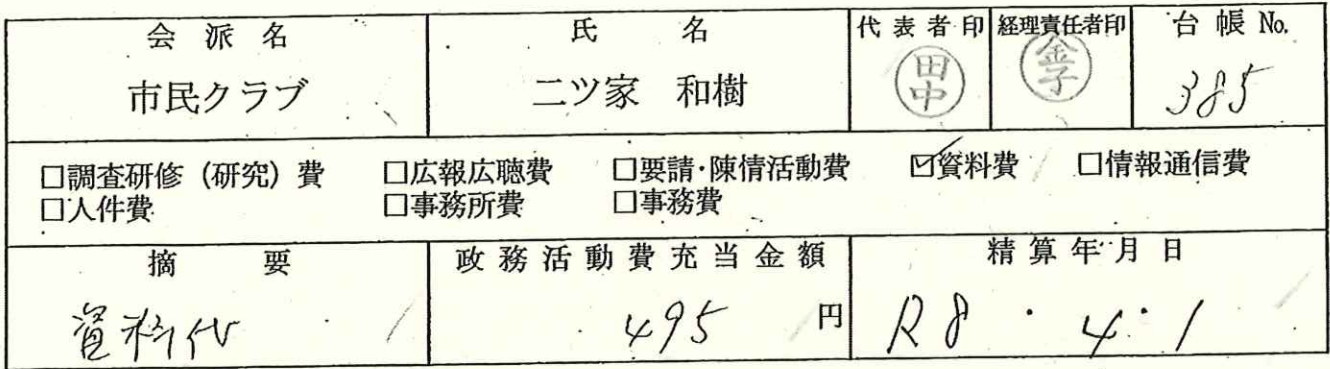 会派名 氏名 代表者印 経理責任者印 台帳No.
市民クラブ 二ツ家 和樹 田中 金子 385
□調査研修(研究)費 □広報広聴費 □要請・陳情活動費 ☑資料費 □情報通信費
□人件費 □事務所費 □事務費
摘要 政務活動費充当金額 精算年月日
資料代 495円 R8・4・1